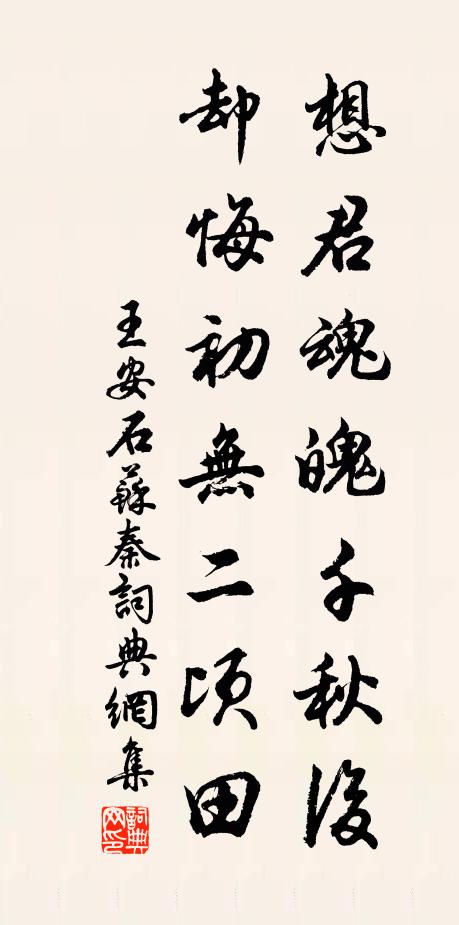 想君魂魄千秋後
却悔初無二頃田
王安石蘇秦詞典網集
詞典網印